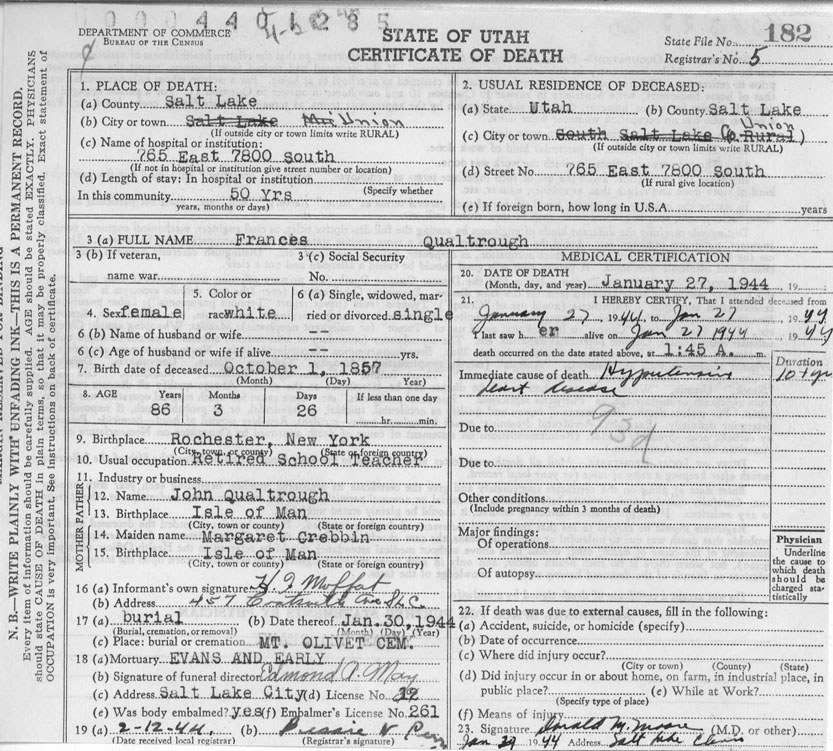 0 0 0 4 4 0 1 2 8 5
DEPARTMENT OF COMMERCE
BUREAU OF THE CENSUS
STATE OF UTAH
CERTIFICATE OF DEATH
State File No. 182
Registrar's No. 5
N. B.—WRITE PLAINLY WITH UNFADING INK—THIS IS A PERMANENT RECORD.
Every item of information should be carefully supplied. AGE should be stated EXACTLY. PHYSICIANS
should state CAUSE OF DEATH in plain terms, so that it may be properly classified. Exact statement of
OCCUPATION is very important. See instructions on back of certificate.
1. PLACE OF DEATH:
(a) County Salt Lake
(b) City or town Salt Lake Union
(If outside city or town limits write RURAL)
(c) Name of hospital or institution:
765 East 7800 South
(If not in hospital or institution give street number or location)
(d) Length of stay: In hospital or institution
In this community 50 Yrs (Specify whether
years, months or days)
2. USUAL RESIDENCE OF DECEASED:
(a) State Utah (b) County Salt Lake
(c) City or town South Salt Lake Co Rural) Union
(If outside city or town limits write RURAL)
(d) Street No. 765 East 7800 South
(If rural give location)
(e) If foreign born, how long in U.S.A. years
3 (a) FULL NAME Frances Qualtrough
3 (b) If veteran,
name war
3 (c) Social Security
No.
4. Sex female
5. Color or
race white
6 (a) Single, widowed, mar-
ried or divorced single
6 (b) Name of husband or wife --
6 (c) Age of husband or wife if alive -- yrs.
7. Birth date of deceased October 1, 1857
(Month) (Day) (Year)
8. AGE Years Months Days If less than one day
86 3 26 hr. min.
9. Birthplace Rochester, New York
(City, town, or county) (State or foreign country)
10. Usual occupation Retired School Teacher
11. Industry or business
FATHER
12. Name John Qualtrough
13. Birthplace Isle of Man
(City, town or county) (State or foreign country)
MOTHER
14. Maiden name Margaret Crebbin
15. Birthplace Isle of Man
(City, town or county) (State or foreign country)
16 (a) Informant's own signature Moffat
(b) Address 457 Ave SLC
17 (a) burial (b) Date thereof Jan. 30, 1944
(Burial, cremation, or removal) (Month) (Day) (Year)
(c) Place: burial or cremation MT. OLIVET CEM.
18 (a) Mortuary EVANS AND EARLY
(b) Signature of funeral director Edmond A. May
(c) Address Salt Lake City (d) License No.
(e) Was body embalmed? yes (f) Embalmer's License No. 261
19 (a) 2-12-44 (b)
(Date received local registrar) (Registrar's signature)
MEDICAL CERTIFICATION
20. DATE OF DEATH
(Month, day, and year) January 27, 1944, 19
21. I HEREBY CERTIFY, That I attended deceased from
January 27, 1944, to Jan 27 1944
I last saw h er alive on Jan 27 1944 1944
death occurred on the date stated above, at 1:45 A. m.
Immediate cause of death Hypertensive
heart disease
Duration
10+ yr
93d
Due to
Due to
Other conditions
(Include pregnancy within 3 months of death)
Major findings:
Of operations
Of autopsy
Physician
Underline
the cause to
which death
should be
charged sta-
tistically
22. If death was due to external causes, fill in the following:
(a) Accident, suicide, or homicide (specify)
(b) Date of occurrence
(c) Where did injury occur?
(City or town) (County) (State)
(d) Did injury occur in or about home, on farm, in industrial place, in
public place? (e) While at Work?
(Specify type of place)
(f) Means of injury
23. Signature Donald M. Moore (M.D. or other)
Jan 29 1944 Address Salt Lake Clinic